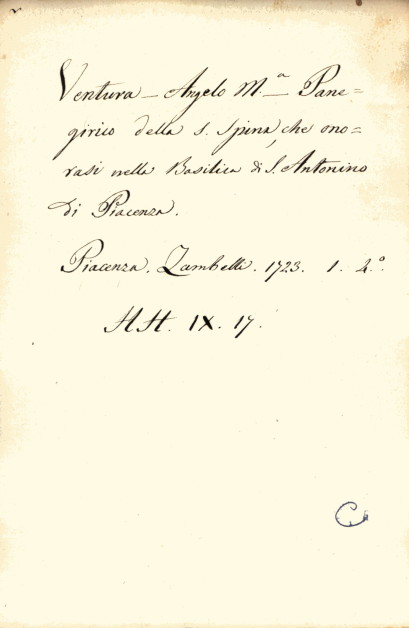 Ventura - Angelo M.ª - Pane=
girico della S. Spina, che ono=
rasi nella Basilica di S. Antonino
di Piacenza.
Piacenza. Zambelli. 1723. 1. 4.º
HH. IX. 17.
C